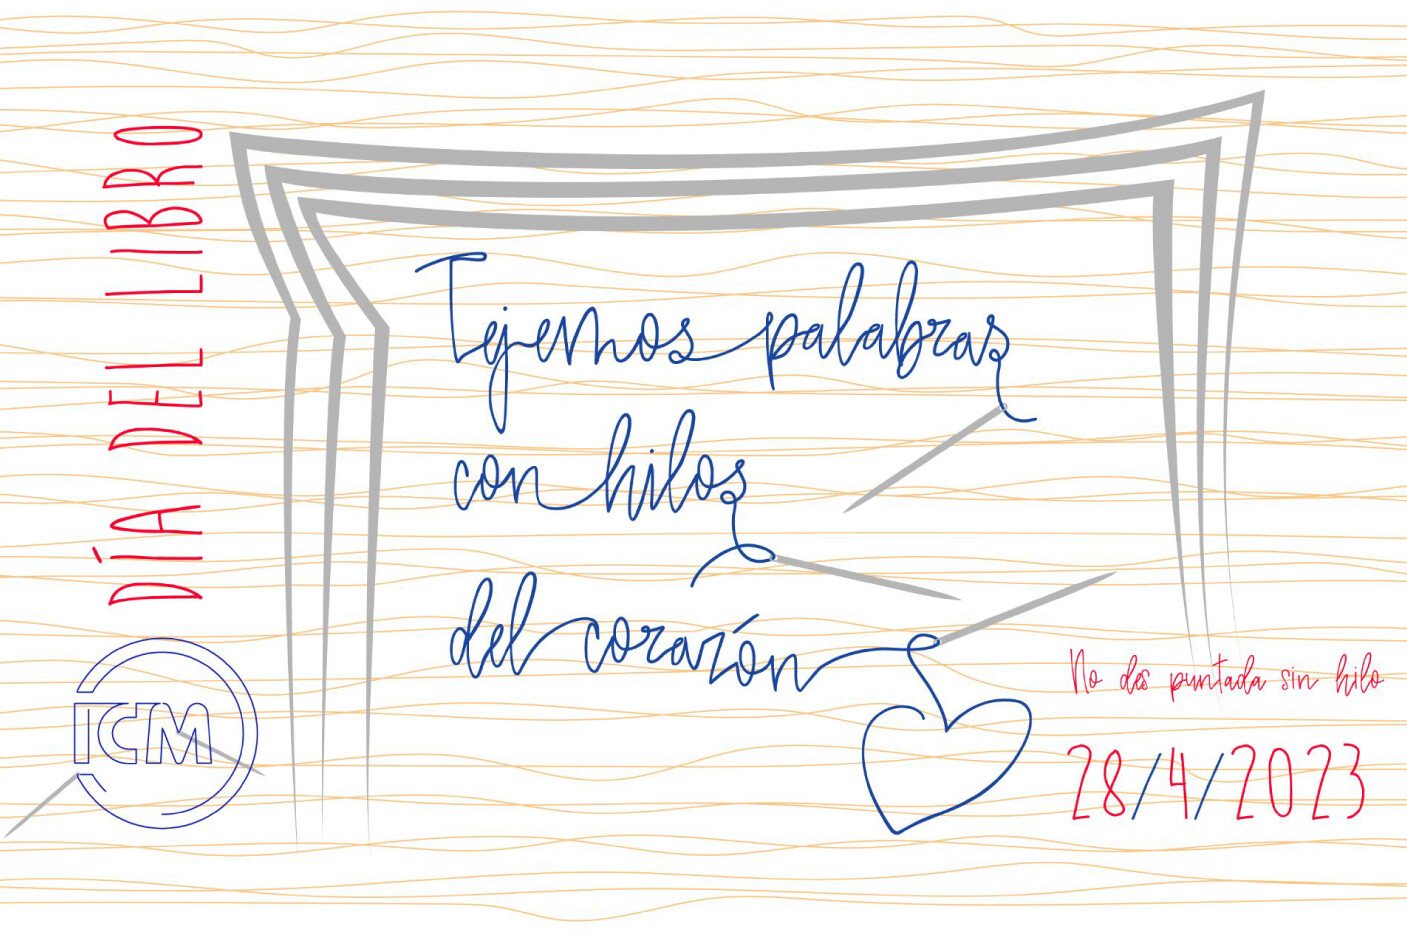 DÍA DEL LIBRO
Tejemos palabras
con hilos
del corazón
ICM
No des puntada sin hilo
28/4/2023